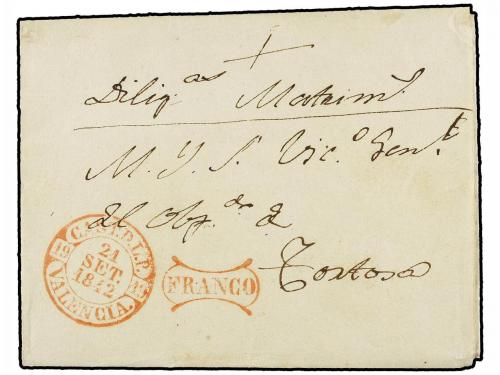 Diligᵃˢ Matrimˢ
M. Y. S. Vic.º Genˡ
Tortosa
CAST.D.L.P.
21
SET.
1842
VALENCIA.
FRANCO